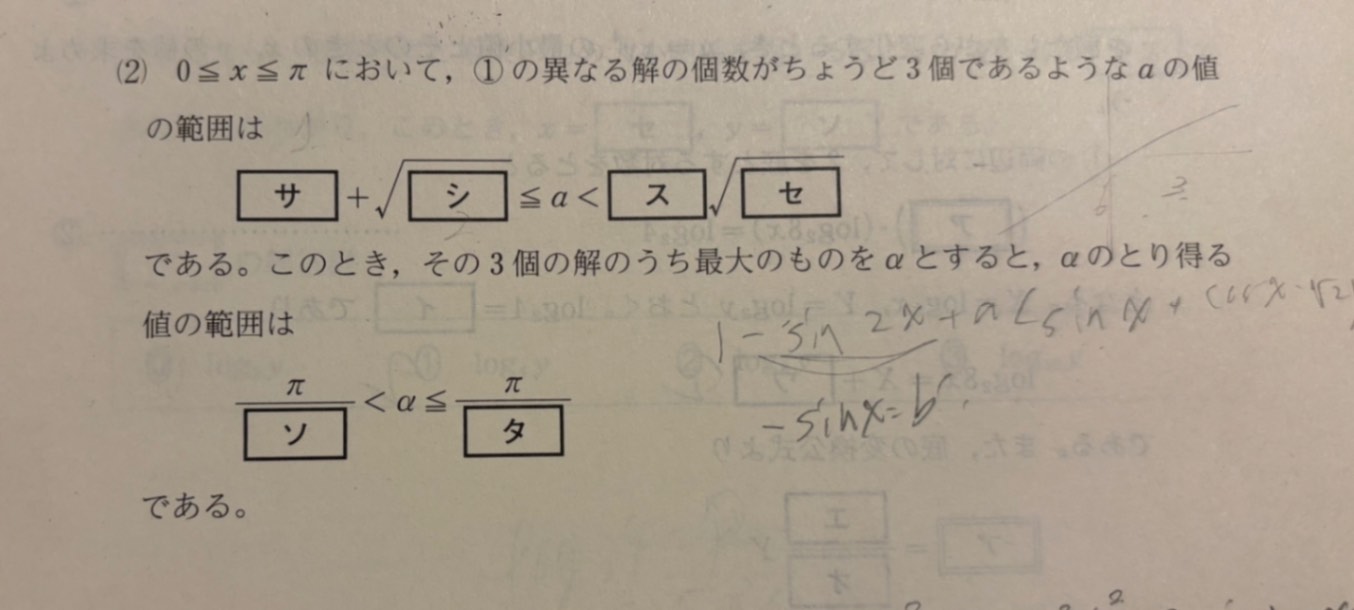 (2) 0≦x≦π において，①の異なる解の個数がちょうど3個であるようなaの値
の範囲は
サ + √シ ≦ a < ス √セ
である。このとき，その3個の解のうち最大のものをαとすると，αのとり得る
値の範囲は
π/ソ < α ≦ π/タ
である。
1 - sin 2x + a (sin x + cos x - √2
- sin x = b